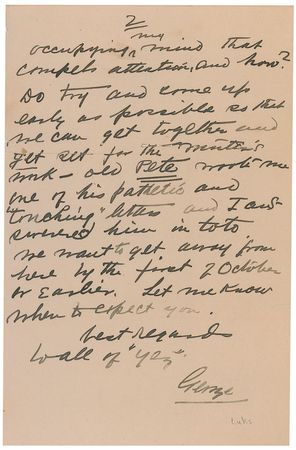 2
my
occupying ^ mind that
compels attention, and how?
Do try and come up
early as possible so that
we can get together and
get set for the winter's
work – old Pete wrote me
one of his pathetic and
"touching" letters and I ans-
swered him in toto
we want to get away from
here by the first of October
or Earlier. Let me know
when to expect you.
best regards
to all of "yez".
George
Luks